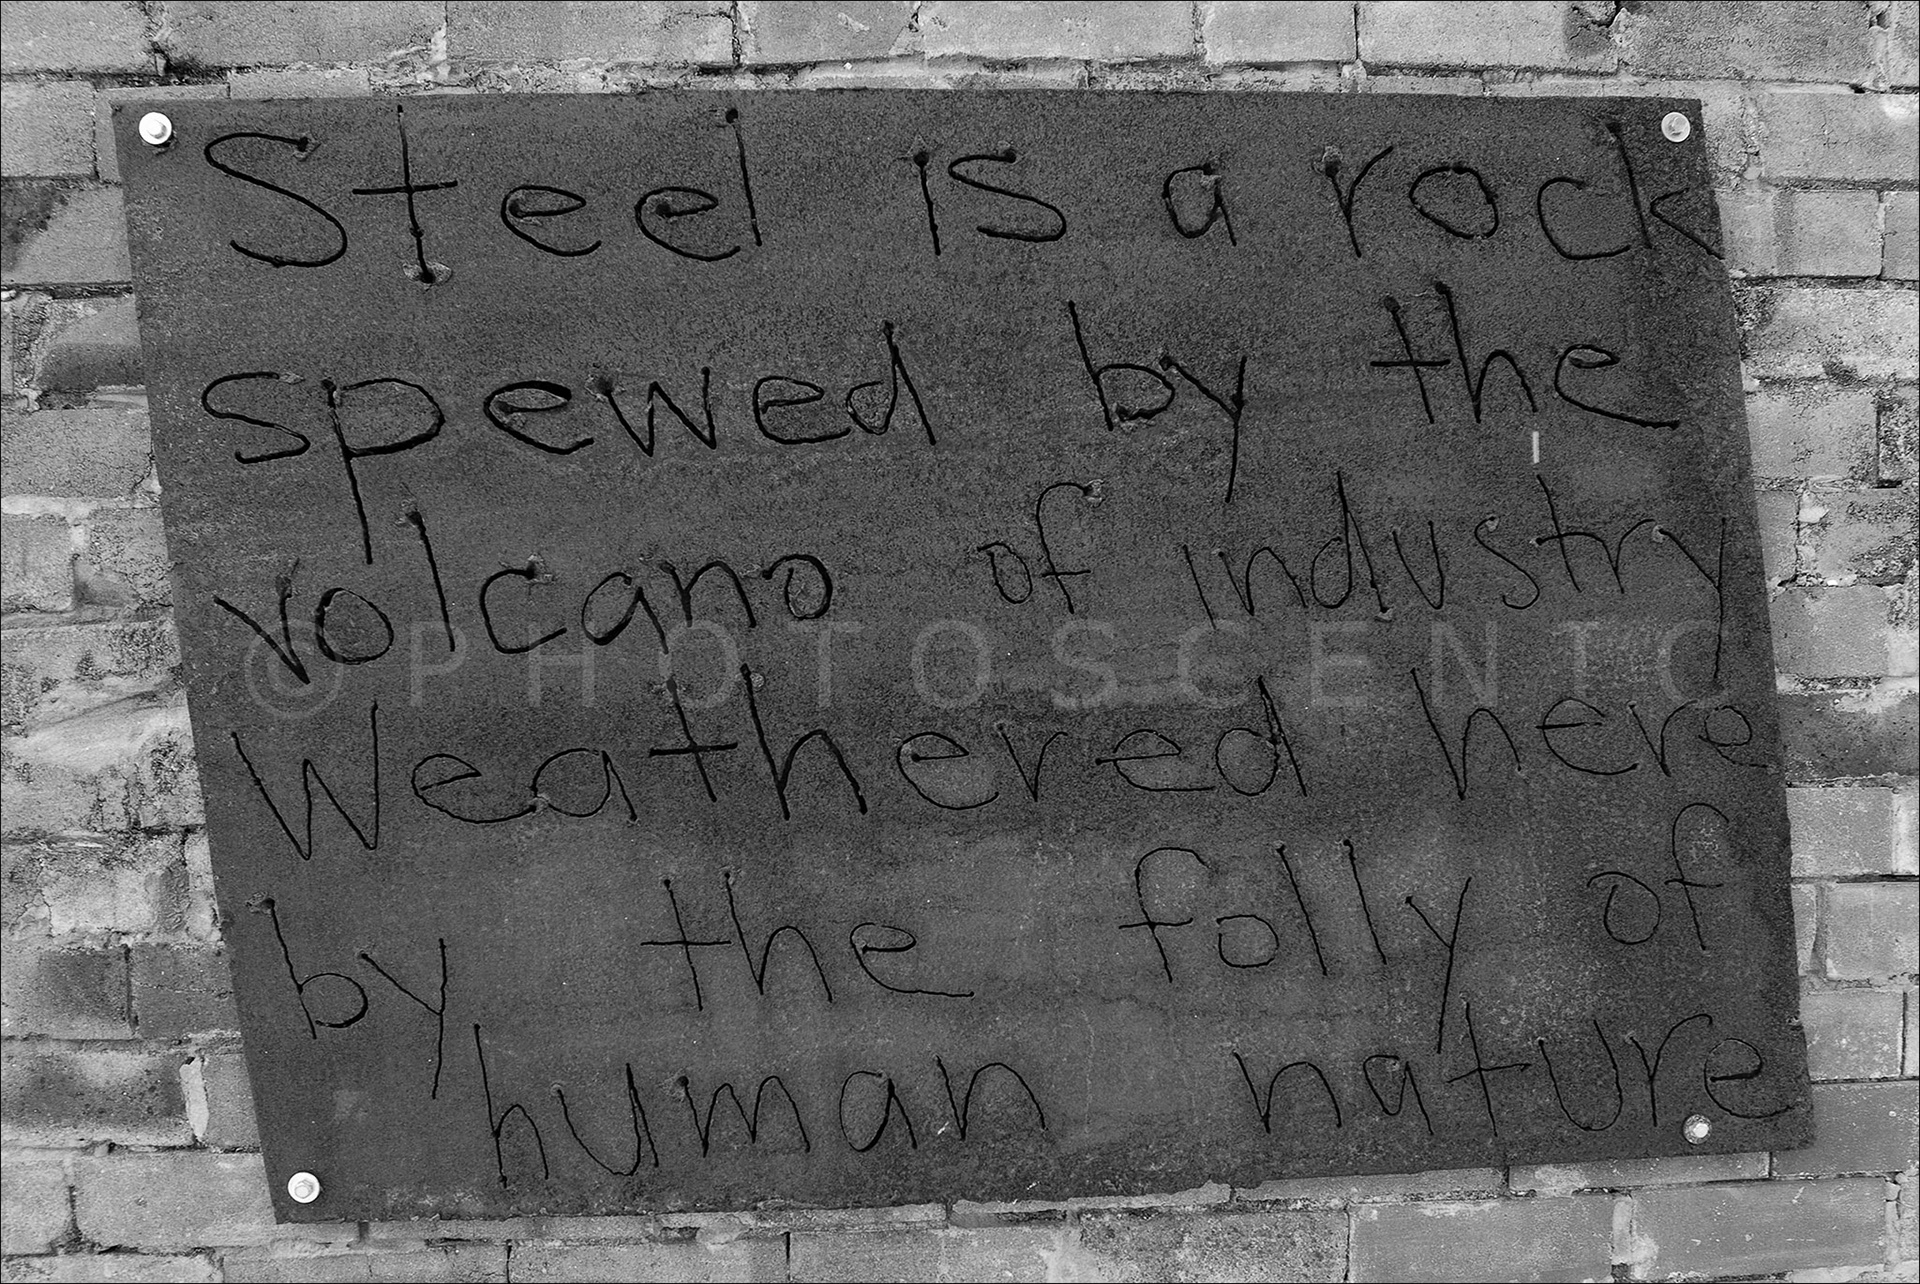 Steel is a rock
spewed by the
volcano of industry
© PHOTOSCENTC
Weathered here
by the folly of
human nature